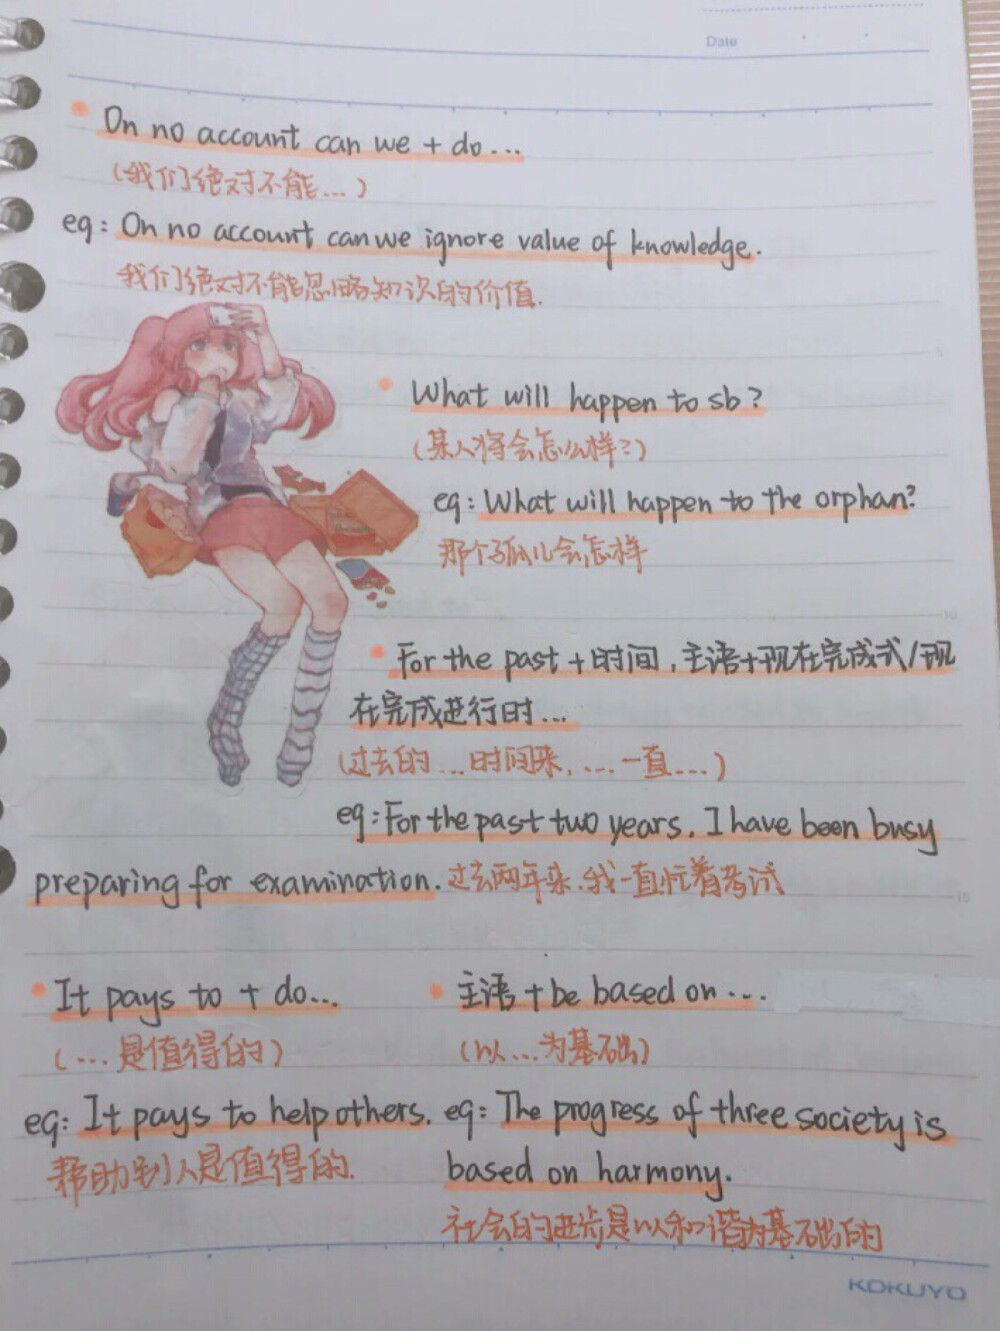 Date
On no account can we + do...
(我们绝对不能...)
eg: On no account can we ignore value of knowledge.
我们绝对不能忽略知识的价值.
What will happen to sb?
(某人将会怎么样?)
eg: What will happen to the orphan?
那个孤儿会怎样
For the past + 时间, 主语+现在完成式/现
在完成进行时...
(过去的...时间来, ...一直...)
eg: For the past two years, I have been busy
preparing for examination. 过去两年来, 我一直忙着考试
It pays to + do...
(...是值得的)
eg: It pays to help others.
帮助别人是值得的.
主语 + be based on...
(以...为基础)
eg: The progress of three society is
based on harmony.
社会的进步是以和谐为基础的
10
15
KOKUYO